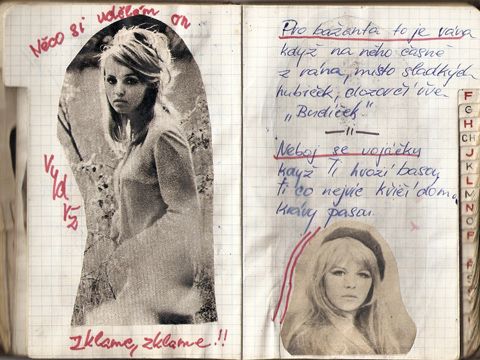 Něco si udělám on
vyjd
Zklame, zklame!!
Pro bažanta to je rána
když na něho časně
z rána, místo sladkých
hubiček, dozorčí řve
„Budíček"
Neboj se vojáčku
když Ti hrozí basou
Ti co nejvíc křičí doma
krávy pasou.
F
G
H
CH
J
K
L
M
N
O
P
Ř
S